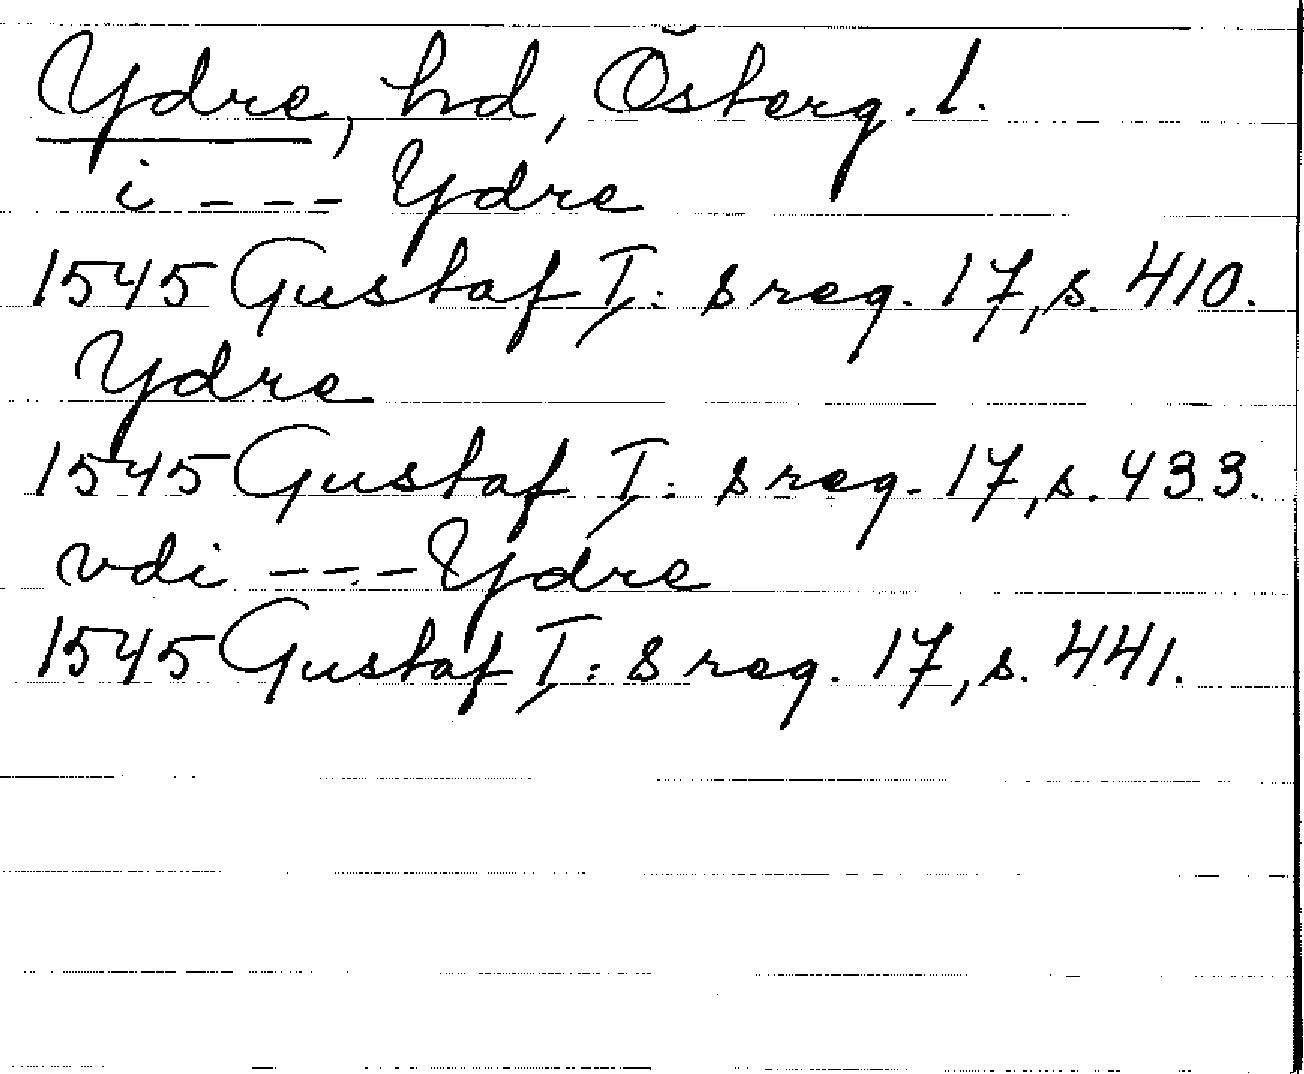 Ydre, hd, Österg. l.
i --- Ydre
1545 Gustaf I: s reg. 17, s. 410.
Ydre
1545 Gustaf I: s reg. 17, s. 433.
vdi --- Ydre
1545 Gustaf I: s reg. 17, s. 441.